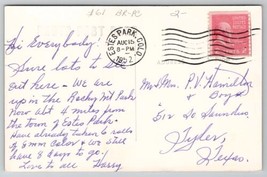 $61 BK-10 2-
ESTES PARK, COLO.
AUG 15
8-PM
1952
Hi Everybody.
Sure lots to see
out here - We are
up in the Rocky Mt Park
Now abt 4 miles from
the town of Estes Park -
Have already taken 6 rolls
of 8 mm Color & We still
have 8 days to go.
Love to all Harry
Mr & Mrs. P.V. Hamilton
& Boys
512 So Saunders
Tyler,
Texas.